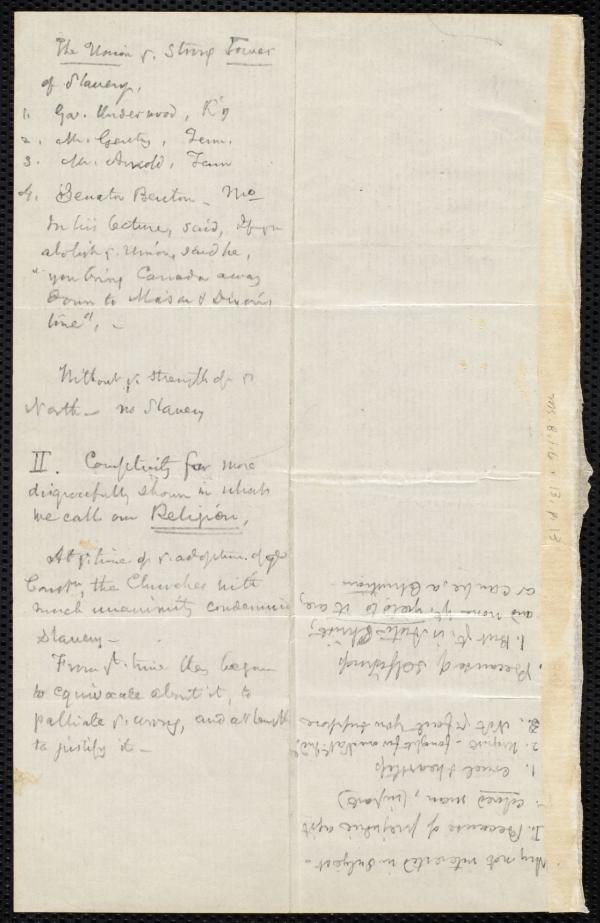 The Union & Strong Tower
of Slavery.
1. Gov. Underwood, K'y
2. Mr. Gentry, Tenn.
3. Mr. Arnold, Tenn
4. Senator Benton - Mo
In his lecture, said, If you
abolish Union, said he,
"you bring Canada away
down to Mason & Dixon's
line". -
Without strength of
North - no Slavery
II. Complicity far more
disgracefully shown in what
we call our Religion,
At time of adoption of
Constn, the Churches with
much unanimity condemned
Slavery -
From time they began
to equivocate about it, to
palliate wrong, and at length
to justify it -
Why not interested in subject -
I. Because of prejudice agst
colored man, (unjust)
1. cruel & heartless
2. Unjust -
3. Not fault you suppose
Because of Selfishness
1. But
and none yt yield to it are,
or can be, a Christian
MS. B.1.6 v. 13, p. 13